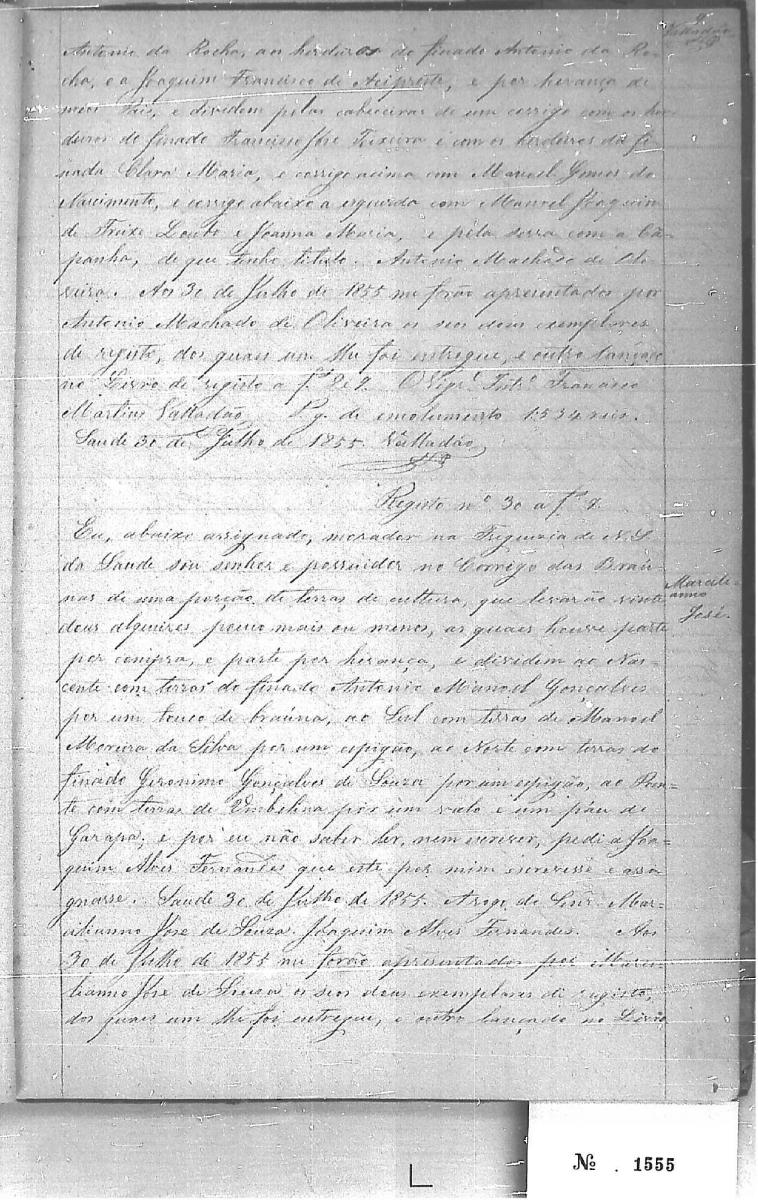 7.
Valladão
Antonio da Rocha, ao herdeiros do finado Antonio da Ro-
cha, e a Joaquim Francisco de Acipreste, e por herança de
meu Pai, e dividem pelas cabeceiras de um corrigo com os her-
deiros do finado Francisco José Teixeira e com os herdeiros da fi-
nada Clara Maria, e corrigo acima com Manoel Gomes do
Nascimento, e corrigo abaixo a esquerda com Manoel Joaquim
de Freixe Loubo e Joanna Maria, e pela serra com a Cã-
panha, de que tenho titulo. Antonio Machado de Oli-
veira. Aos 30 de Julho de 1855 me forão apresentados por
Antonio Machado de Oliveira os seos dous exemplares
de registo, dos quais um lhe foi entregue, e outro lançado
no Livro de registo a fs 2 e 7. O Vigr.º Intr.º Francisco
Martins Valladão. Pg. de emolumento 1534 reis.
Saude 30 de Julho de 1855. Valladão
Registo nº 30 a fs 7.
Eu, abaixo assignado, morador na Freguezia de N. S.
da Saude sou senhor e possuidor no Corrigo das Braú-
nas de uma porção de terras de cultura, que levarão vinte
dous alqueires pouco mais ou menos, as quaes houve parte
por compra, e parte por herança, e dividem ao Nas-
cente com terras do finado Antonio Manoel Gonçalves
por um touco de braúna, ao Sul com terras de Manoel
Moreira da Silva por um espigão, ao Norte com terras do
finado Geronimo Gonçalves de Souza por um espigão, ao Poen-
te com terras de Umbelina por um valo e um páu de
Garapa; e por eu não saber ler, nem escrever, pedi a Joa-
quim Alves Fernandes que este por mim escrevesse e assi-
gnasse. Saude 30 de Julho de 1855. Arogo do Senr. Mar-
cilianno José de Souza. Joaquim Alves Fernandes. Aos
30 de Julho de 1855 me forão apresentados por Marci-
lianno José de Souza os seos dous exemplares de registo,
dos quaes um lhe foi entregue, e outro lançado no Livro
Marcili-
anno
José.
Nº . 1555